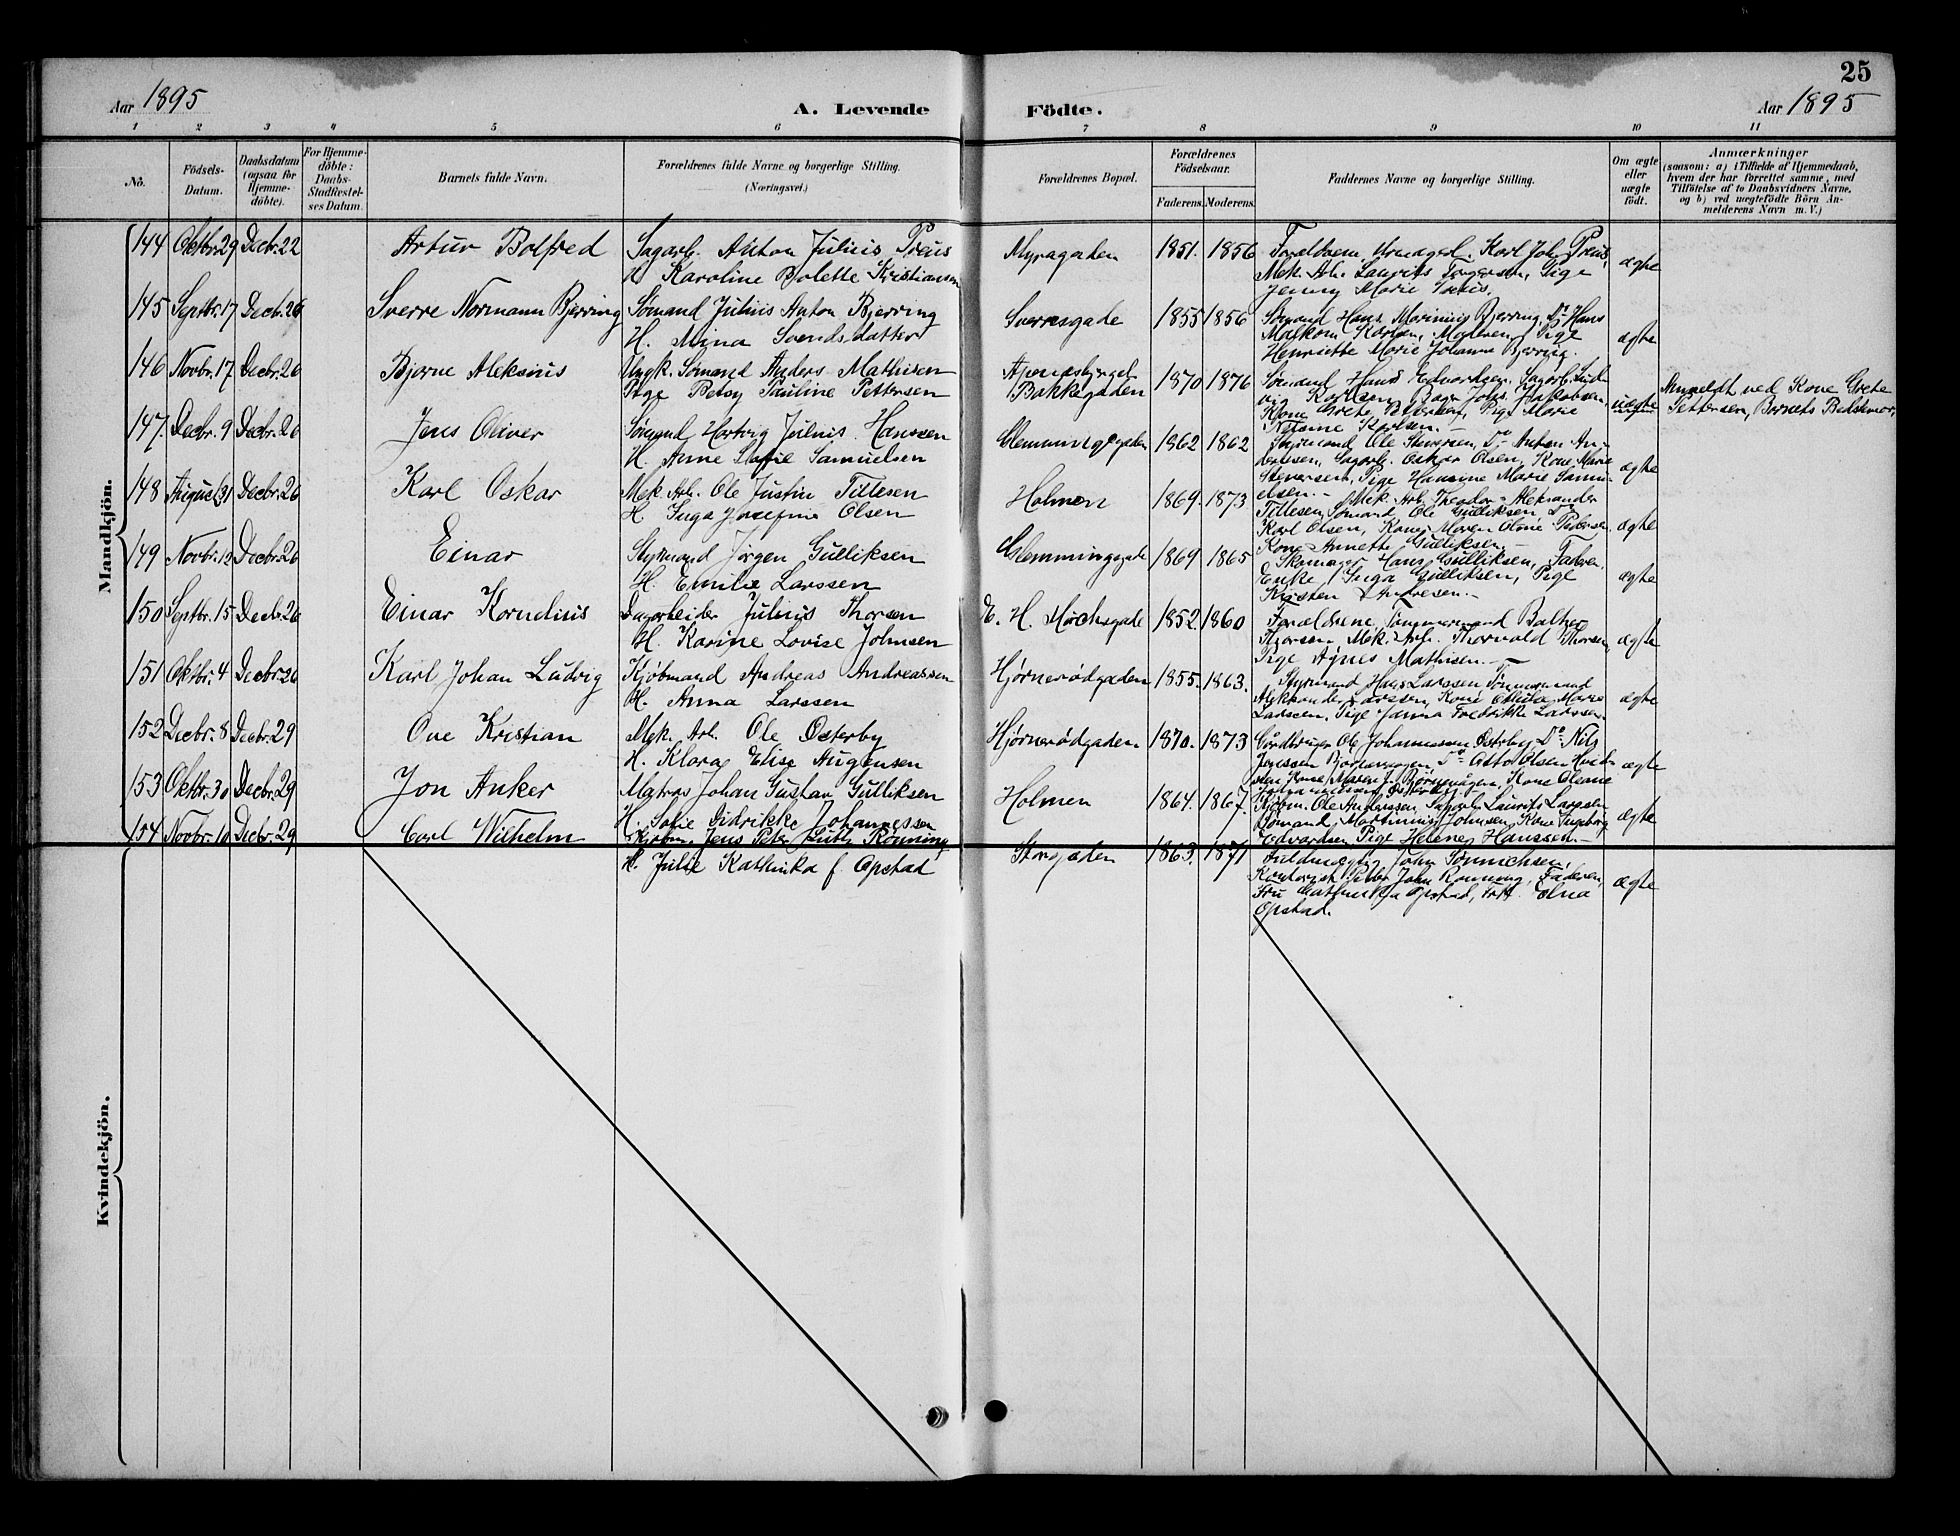 25
Aar 1895
A. Levende Födte.
Aar 1895
1 2 3 4 5 6 7 8 9 10 11
No.
Födsels-Datum.
Daabsdatum (ogsaa for Hjemme-döbte).
For Hjemme-döbte: Daabs-Stadfæstel-ses Datum.
Barnets fulde Navn.
Forældrenes fulde Navne og borgerlige Stilling.
(Næringsvei.)
Forældrenes Bopæl.
Forældrenes Födselsaar.
Faderens. Moderens.
Faddernes Navne og borgerlige Stilling.
Om ægte eller uægte födt.
Anmærkninger
(saasom: a) i Tilfælde af Hjemmedaab,
hvem der har forrettet samme, med
Tilföielse af to Daabsvidners Navne,
og b) ved uægtefödte Börn An-
melderens Navn m. V.)
Mandkjön.
144 Oktbr. 29 Decbr. 22 Artur Bolfred Sagarb. Anton Julius Preus
H. Karoline Bolette Kristiansen
Myragaden 1851. 1856 Forældrene, Karl Joh. Preus,
Mek. Arb. Laurits Torgersen, Pige
Jenny Marie
ægte
145 Septbr. 17 Decbr. 26 Sverre Normann Bjerring Sømand Julius Anton Bjerring
H. Mina Svendsdatter
Sverresgade 1855 1856 Sømand Hans Marinius Bjerring, Do Hans
Malkom Moderen, Pige
Henriette Marie Johanne Bjerring.
ægte
146 Novbr. 17 Decbr. 26 Bjarne Aleksius Ungk. Sømand Anders Mathisen
Pige Betsy Pauline Pettersen
Bakkegaden 1870 1876 Sømand Hans Edvardsen, Sagarb. Lud-
vig Karlsen, Bager Johs. Jakobsen,
Kone Grete Pettersen, Pige Marie
Karlsen.
uægte
Anmeldt ved Kone Grete
Pettersen, Barnets Bedstemor,
147. Decbr. 9 Decbr. 26 Jens Oliver Sømand Hartvig Julius Hanssen
H. Anne Sofie Samuelsen
Clemmingsgaden 1862 1862 Styrmand Ole Stenersen, Do Anton An-
derssen, Sagarb. Oskar Olsen, Kone Marie
Stenersen, Pige Hansine Marie Samu-
elsen.
ægte
148 August 31 Decbr. 26 Karl Oskar Mek. Arb. Ole Justin Tillesen
H. Inga Josefine Olsen
Holmen 1869. 1873 Mek. Arb. Theodor Aleksander
Tillesen, Sømand Ole Gulliksen Do
Karl Olsen, Kone Maren Olave Pedersen,
Kone Annette Gulliksen.
ægte
149 Novbr. 12 Decbr. 26 Einar Styrmand Jørgen Gulliksen
H. Emilie Larssen
Clemmingsgade 1869 1865 Skomager Hans Gulliksen, Faderen,
Enke Inga Gulliksen, Pige
Kirsten Andresen.
ægte
150 Septbr. 15 Decbr. 26 Einar Kornelius Sagarbeider Julius Thorsen
H. Karine Lovise Johnsen
N. H. Mørchsgade 1852. 1860 Forældrene, Tømmermand Balther
Thorsen, Mek. Arb. Thorvald Thorsen,
Pige Agnes Mathisen.
ægte
151 Oktbr. 4 Decbr. 26 Karl Johan Ludvig Kjøbmand Andreas Andreassen
H. Anna Larssen
Hjørnerødgaden 1855. 1863. Styrmand Hans Larssen Tømmermand
Aleksander Larssen, Kone Marie
Larssen, Pige Janna Fredrikke Larssen.
ægte
152 Decbr. 8 Decbr. 29 Ove Kristian Mek. Arb. Ole Østerby
H. Klara Elise Augensen
Hjørnerødgaden 1870. 1873 Gårdbruger Ole Johannesen Østerby, Do Nils
Jenssen Do Otto Olsen
Kone Maren Kone Oleane
ægte
153 Oktbr. 30 Decbr. 29 Jon Anker Matros Johan Gustav Gulliksen
H. Sofie Didrikke Johannessen
Holmen 1864. 1867. Kjøbm. Ole Anderssen, Sagarb. Laurits Larssen
Sømand Martinius Johnsen, Kone Ingeborg
Edvardsen Pige Helene Hanssen.
ægte
154 Novbr. 10 Decbr. 29 Carl Wilhelm Kjøbm. Jens Peter Rønning
H. Julie Kathinka f. Opstad
Storgaden 1863. 1871 John Tønnichsen,
Kontorist John Rønning, Faderen,
Fru Cathinka Opstad, Frk. Elna
Opstad.
ægte
Kvindekjön.